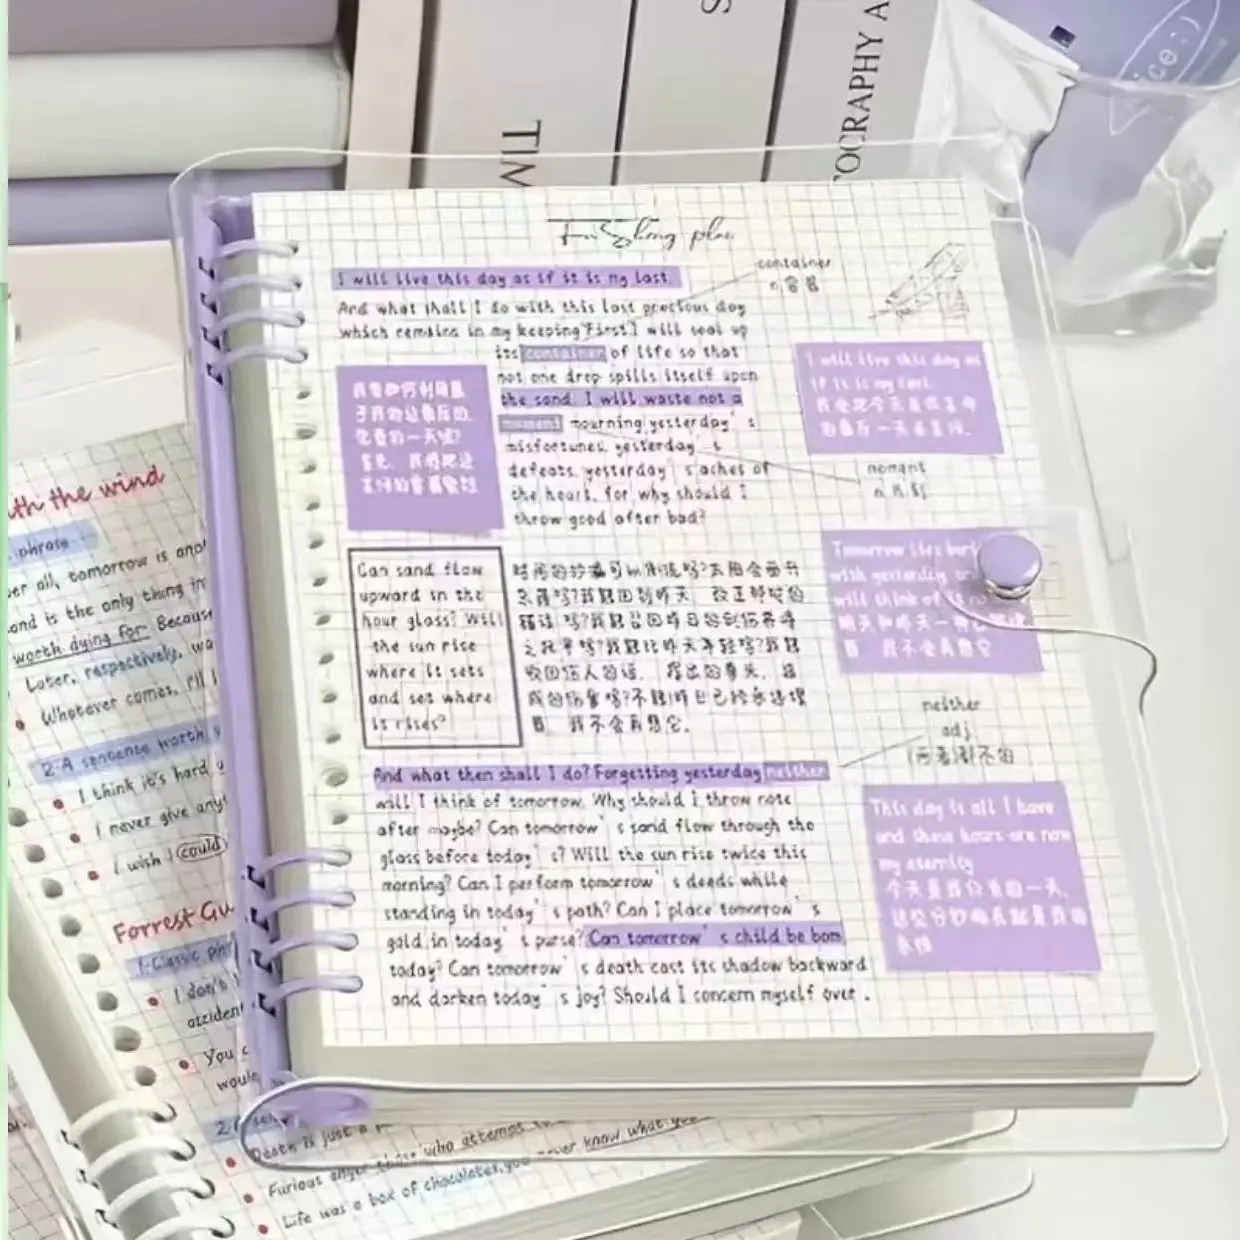 TIM
S
TOGRAPHY A
ice:)
plan
I will live this day as if it is my last.
container
n.容器
And what shall I do with this last precious day
which remains in my keeping? First, I will seal up
its container of life so that
not one drop spills itself upon
the sand. I will waste not a
moment mourning yesterday's
misfortunes, yesterday's
defeats, yesterday's aches of
the heart, for why should I
throw good after bad?
我要如何利用最
后的一天呢?
首先,我要把这
I will live this day as
if it is my last.
我会把今天当成生命
的最后一天来
moment
n.片刻
Can sand flow
upward in the
hour glass? Will
the sun rise
where it sets
and set where
it rises?
时间的沙漏可以倒流吗?太阳会西升
东落吗?我能回到昨天,改正那时的
错误吗?我能召回昨日的创伤
我能比昨天年轻吗?我能
收回伤人的话,
的伤害吗?不能!昨日已经永远埋
葬,我不会再想它。
Tomorrow lies
with yesterday
will think of it
明天和昨天一
葬,我不会再想它
neither
adj
(两者)都不的
And what then shall I do? Forgetting yesterday neither
will I think of tomorrow. Why should I throw note
after maybe? Can tomorrow's sand flow through the
glass before today's? Will the sun rise twice this
morning? Can I perform tomorrow's deeds while
standing in today's path? Can I place tomorrow's
gold in today's purse? Can tomorrow's child be born
today? Can tomorrow's death cast its shadow backward
and darken today's joy? Should I concern myself over.
This day is all I have
and these hours are now
my eternity
今天是我仅有的一天,
这些分秒
永恒
ith the wind
phrase
er all, tomorrow is anot
and is the only thing in
worth dying for. Because
Later, respectively, wa
Whatever comes, I'll l
2.A sentence worth
I think it's hard
I never give any
I wish I could
Forrest Gu
1.Classic phr
I don't
accident
You c
would
2.A
Death is just a p
Furious anger those who attempt
Life was a box of chocolates, you never know what you